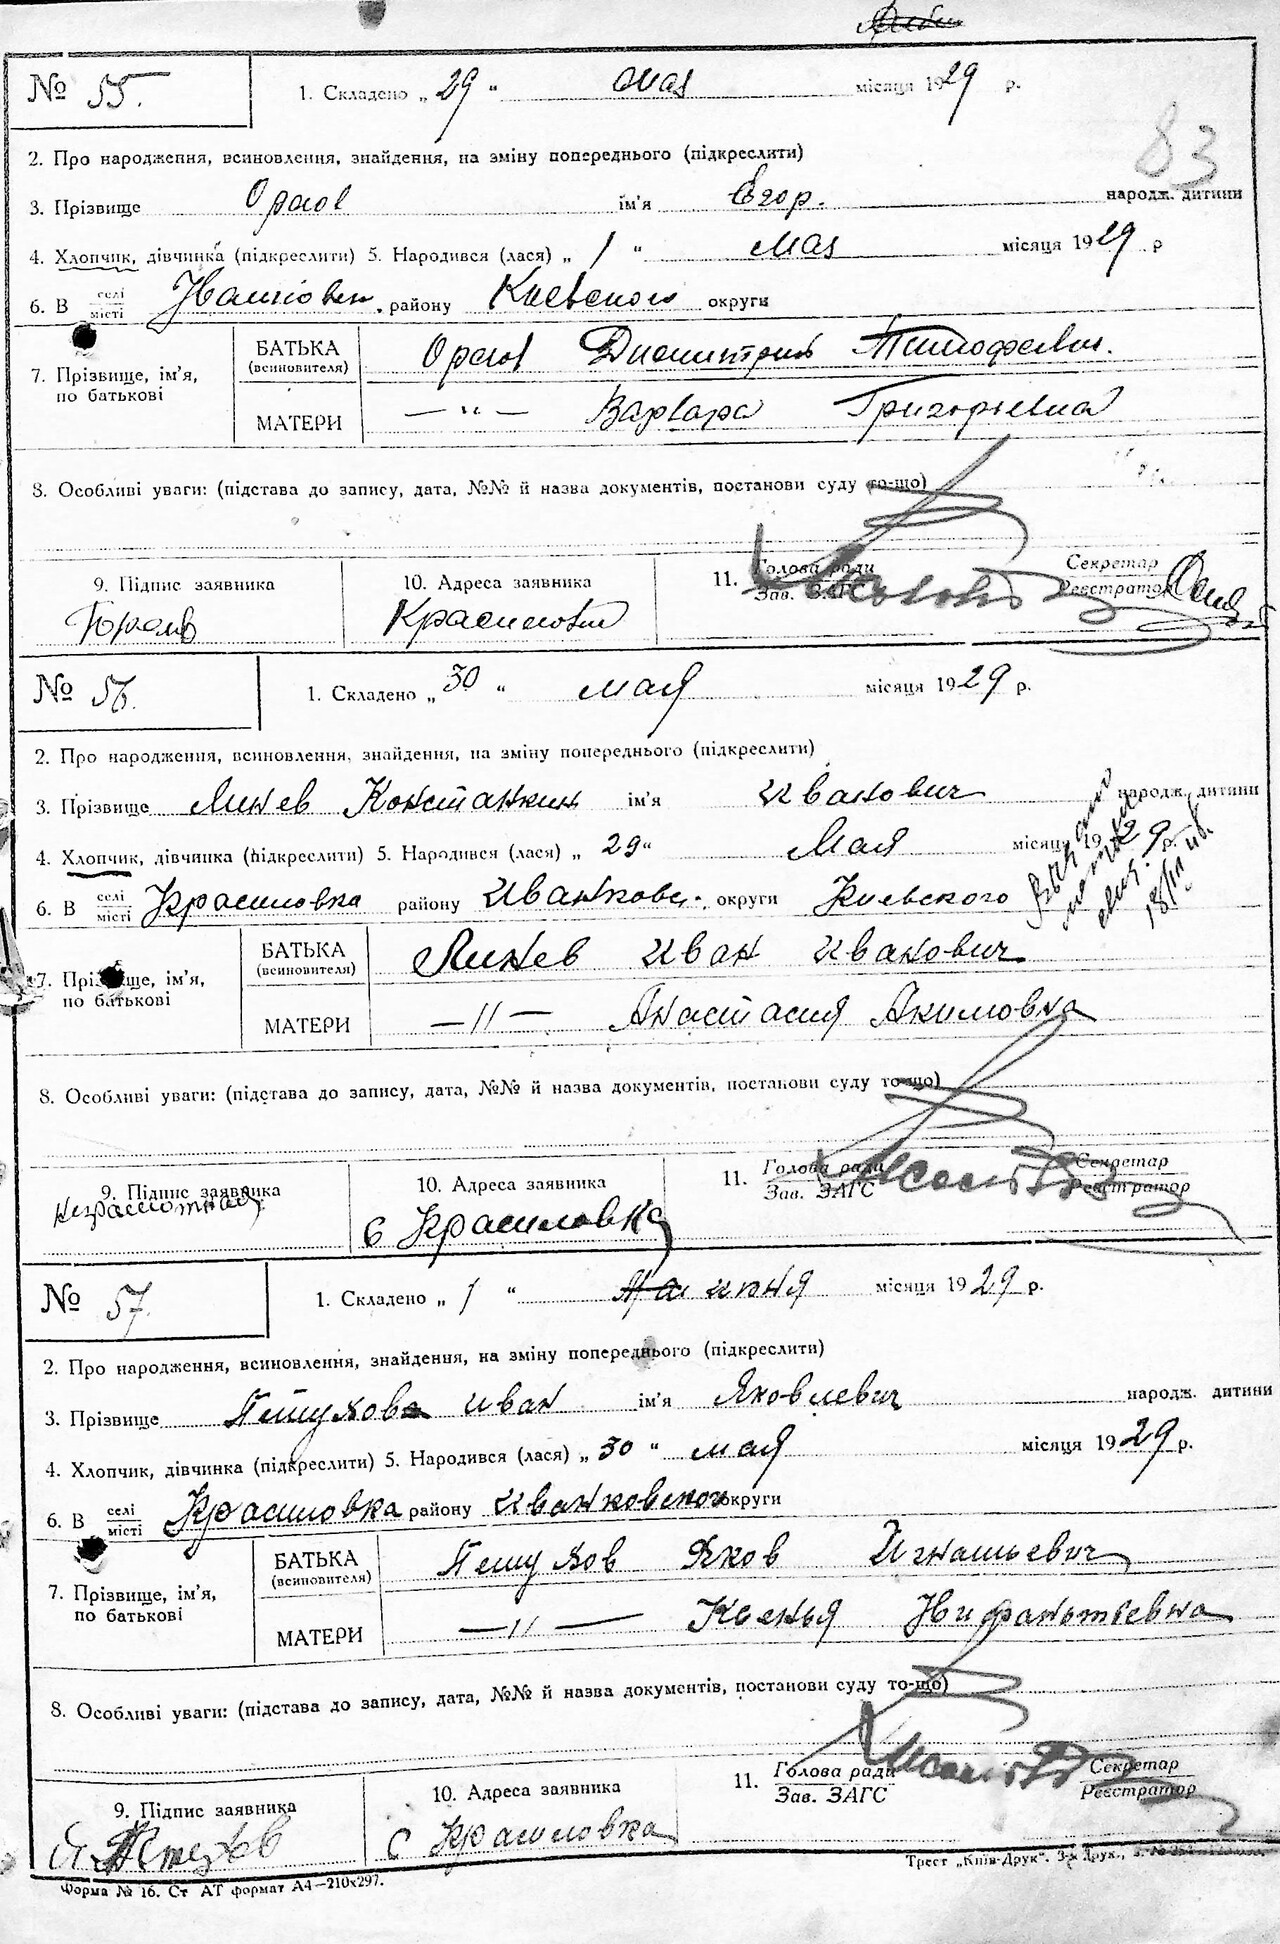 № 55. 1. Складено „ 29 " мая місяця 1929 р.
83
2. Про народження, всиновлення, знайдення, на зміну попереднього (підкреслити)
3. Прізвище Орлов ім'я Егор. народж. дитини
4. Хлопчик, дівчинка (підкреслити) 5. Народився (лася) „ 1 " мая місяця 1929 р
6. В селі/місті району Киевского округи
7. Прізвище, ім'я, по батькові
БАТЬКА (всиновителя) Орлов Тимофеевич.
МАТЕРИ — " — Варвара Григорьевна
8. Особливі уваги: (підстава до запису, дата, №№ й назва документів, постанови суду то-що)
9. Підпис заявника 10. Адреса заявника 11. Голова ради Зав. ЗАГС Секретар Реєстратор
№ 56. 1. Складено „ 30 " мая місяця 1929 р.
2. Про народження, всиновлення, знайдення, на зміну попереднього (підкреслити)
3. Прізвище Линев Константин ім'я Иванович народж. дитини
4. Хлопчик, дівчинка (підкреслити) 5. Народився (лася) „ 29 " Мая місяця 1929 р.
6. В селі/місті Красиловка району Иванковс. округи Киевского
18/III
7. Прізвище, ім'я, по батькові
БАТЬКА (всиновителя) Линев Иван Иванович
МАТЕРИ — 11 — Анастасия Акимовна
8. Особливі уваги: (підстава до запису, дата, №№ й назва документів, постанови суду то-що)
9. Підпис заявника 10. Адреса заявника 11. Голова ради Зав. ЗАГС Секретар Реєстратор
с Красиловка
№ 57. 1. Складено „ 1 " июня місяця 1929 р.
2. Про народження, всиновлення, знайдення, на зміну попереднього (підкреслити)
3. Прізвище Петухов Иван ім'я Яковлевич народж. дитини
4. Хлопчик, дівчинка (підкреслити) 5. Народився (лася) „ 30 " мая місяця 1929 р.
6. В селі/місті Красиловка району Иванковского округи
7. Прізвище, ім'я, по батькові
БАТЬКА (всиновителя) Петухов Яков Игнатьевич
МАТЕРИ — 11 — Ксенья Нифантьевна
8. Особливі уваги: (підстава до запису, дата, №№ й назва документів, постанови суду то-що)
9. Підпис заявника 10. Адреса заявника 11. Голова ради Зав. ЗАГС Секретар Реєстратор
с Красиловка
Форма № 16. Ст АТ формат А4—210х297. Трест „Київ-Друк". 3-я Друк.,